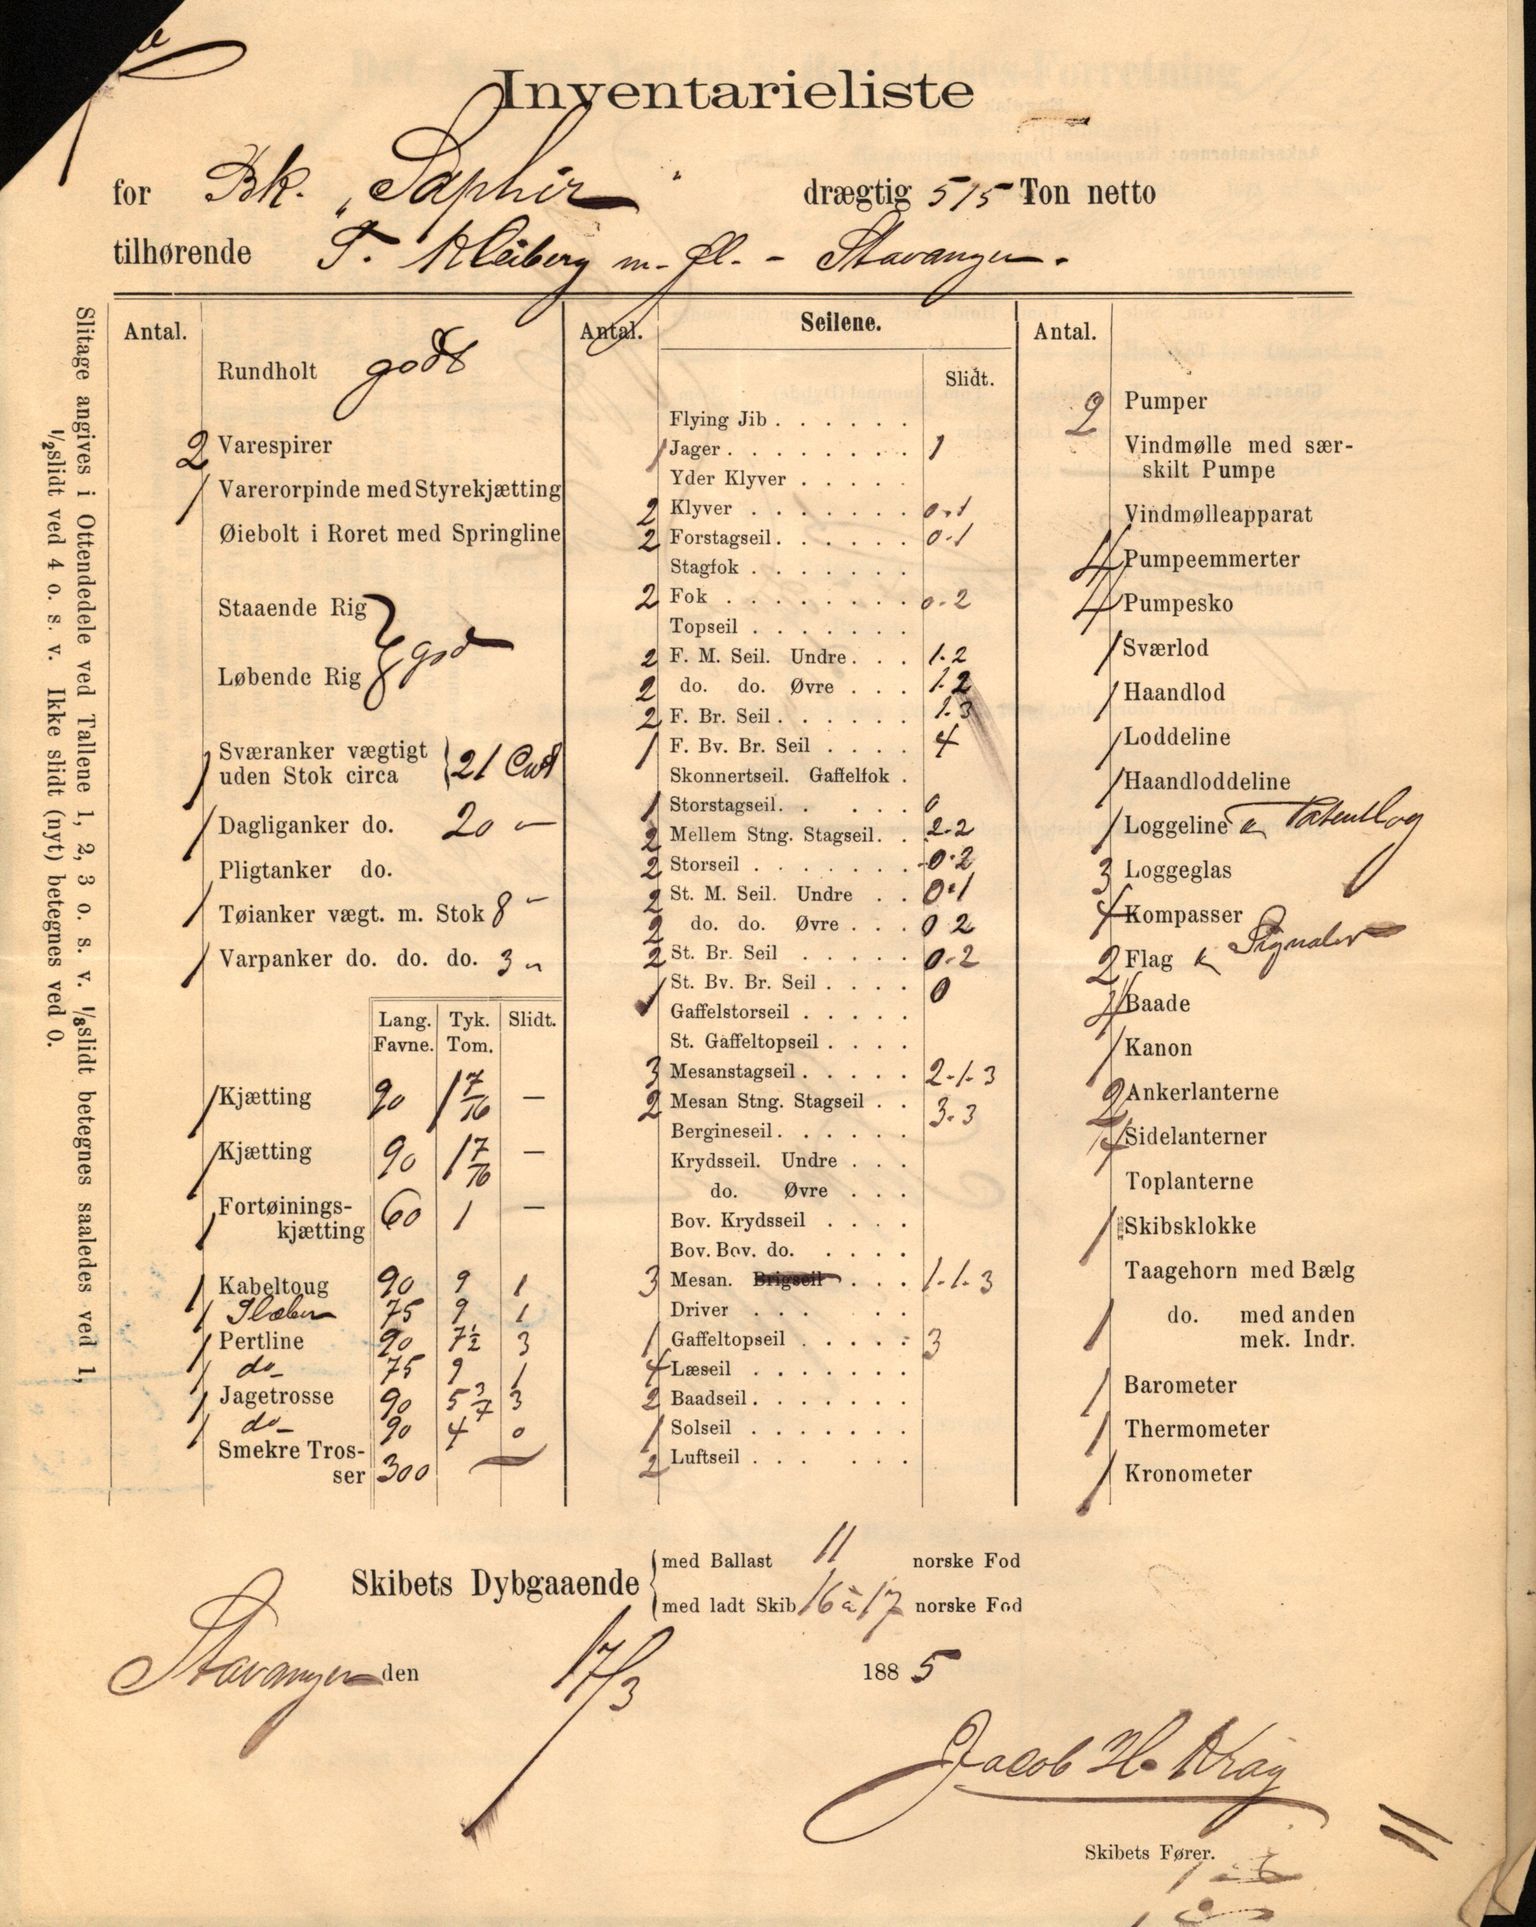 Inventarieliste
for Bk. „Saphir" drægtig 515 Ton netto
tilhørende T. Kleiberg m. fl. - Stavanger.
Slitage angives i Ottendedele ved Tallene 1, 2, 3 o. s. v. 1/8 slidt betegnes saaledes ved 1,
1/2 slidt ved 4 o. s. v. Ikke slidt (nyt) betegnes ved 0.
Antal.
Rundholt godt
2 Varespirer
1 Varerorpinde med Styrekjætting
Øiebolt i Roret med Springline
Staaende Rig
Løbende Rig } god
1 Sværanker vægtigt
uden Stok circa } 21 Cwt
1 Dagliganker do. 20 "
Pligtanker do.
1 Tøianker vægt. m. Stok 8 "
1 Varpanker do. do. do. 3 "
Lang. Tyk. Slidt.
Favne. Tom.
1 Kjætting 90 1 7/16 —
1 Kjætting 90 1 7/16 —
1 Fortøinings-
kjætting 60 1 —
1 Kabeltoug 90 9 1
1 Slæber 75 9 1
1 Pertline 90 7 1/2 3
1 do 75 9 1
1 Jagetrosse 90 5 3/7 3
1 do 90 4 0
Smekre Tros-
ser 300 —
Antal. Seilene.
Slidt.
Flying Jib . . . . . .
1 Jager . . . . . . . . 1
Yder Klyver . . . . .
2 Klyver . . . . . . . 0-1
2 Forstagseil . . . . . . 0-1
Stagfok . . . . . . .
2 Fok . . . . . . . . 0-2
Topseil . . . . . . .
2 F. M. Seil. Undre . . . 1-2
2 do. do. Øvre . . . 1-2
2 F. Br. Seil . . . . . . 1-3
1 F. Bv. Br. Seil . . . . 4
Skonnertseil. Gaffelfok .
1 Storstagseil . . . . . 0
2 Mellem Stng. Stagseil . . 2-2
2 Storseil . . . . . . . 0-2
2 St. M. Seil. Undre . . 0-1
2 do. do. Øvre . . . 0 2
2 St. Br. Seil . . . . . 0-2
1 St. Bv. Br. Seil . . . . 0
Gaffelstorseil . . . . .
St. Gaffeltopseil . . . .
3 Mesanstagseil . . . . . 2-1-3
2 Mesan Stng. Stagseil . . 3-3
Bergineseil . . . . . .
Krydsseil. Undre . . .
do. Øvre . . .
Bov. Krydsseil . . . .
Bov. Bov. do. . . . .
3 Mesan. Brigseil . . . 1-1-3
Driver . . . . .
1 Gaffeltopseil . . . . . 3
4 Læseil . . . . . . .
2 Baadseil . . . . . . .
1 Solseil . . . . . . .
2 Luftseil . . . . . .
Antal.
2 Pumper
Vindmølle med sær-
skilt Pumpe
Vindmølleapparat
4 Pumpeemmerter
4 Pumpesko
1 Sværlod
1 Haandlod
1 Loddeline
1 Haandloddeline
1 Loggeline & Patentlog
3 Loggeglas
4 Kompasser
2 Flag & Signaler
4 Baade
1 Kanon
2 Ankerlanterne
4 Sidelanterner
Toplanterne
1 Skibsklokke
Taagehorn med Bælg
1 do. med anden
mek. Indr.
1 Barometer
1 Thermometer
1 Kronometer
Skibets Dybgaaende { med Ballast 11 norske Fod
med ladt Skib 16 à 17 norske Fod
Stavanger den 17/3 1885
Jacob H. Krag
Skibets Fører.